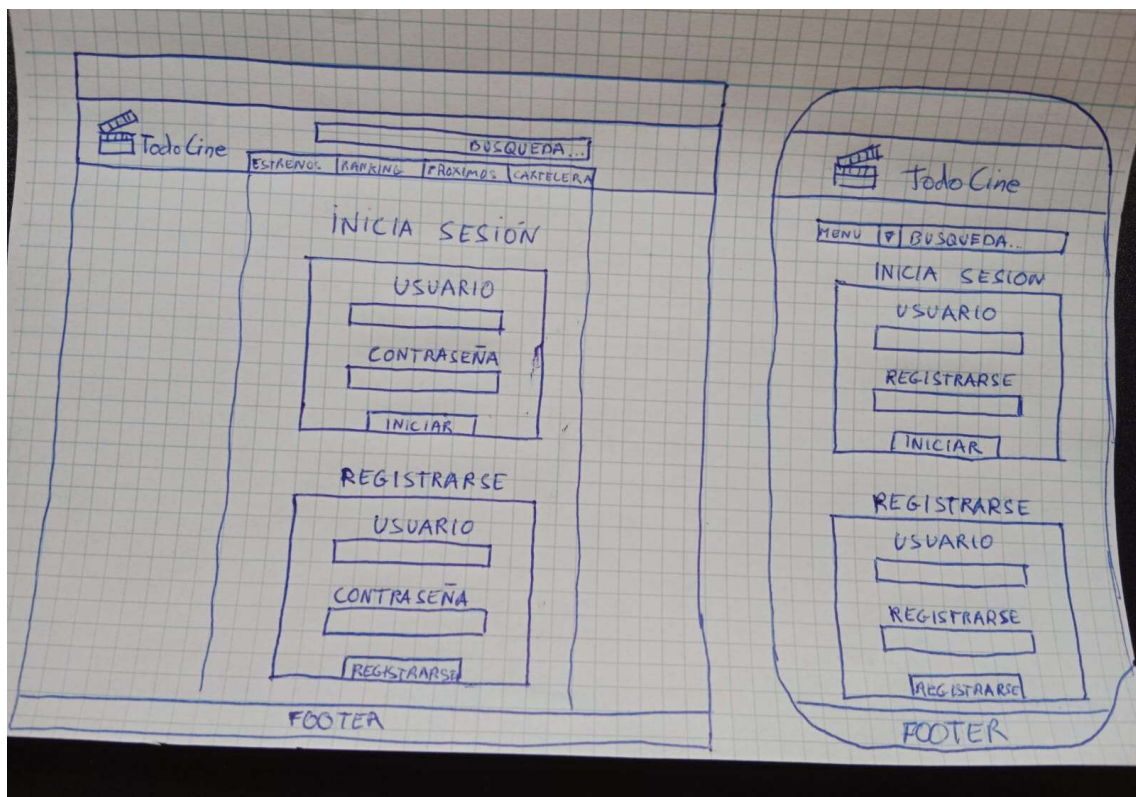 Todo Cine
BUSQUEDA...
ESTRENOS RANKING PROXIMOS CARTELERA
INICIA SESIÓN
USUARIO
CONTRASEÑA
INICIAR
REGISTRARSE
USUARIO
CONTRASEÑA
REGISTRARSE
FOOTER
Todo Cine
MENU BUSQUEDA...
INICIA SESION
USUARIO
REGISTRARSE
INICIAR
REGISTRARSE
USUARIO
REGISTRARSE
REGISTRARSE
FOOTER